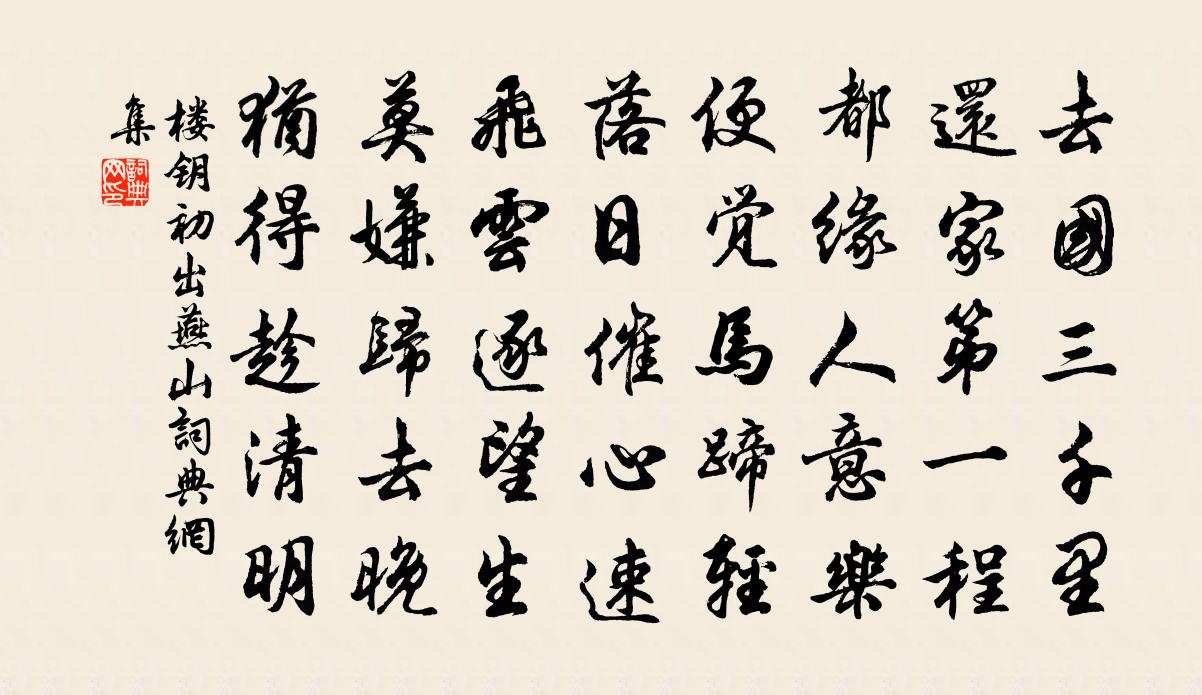 去國三千里
還家第一程
都緣人意樂
便觉馬蹄輕
落日催心速
飛雲逐望生
莫嫌歸去晚
猶得趁清明
楼钥初出燕山詞典網
集
詞典網印